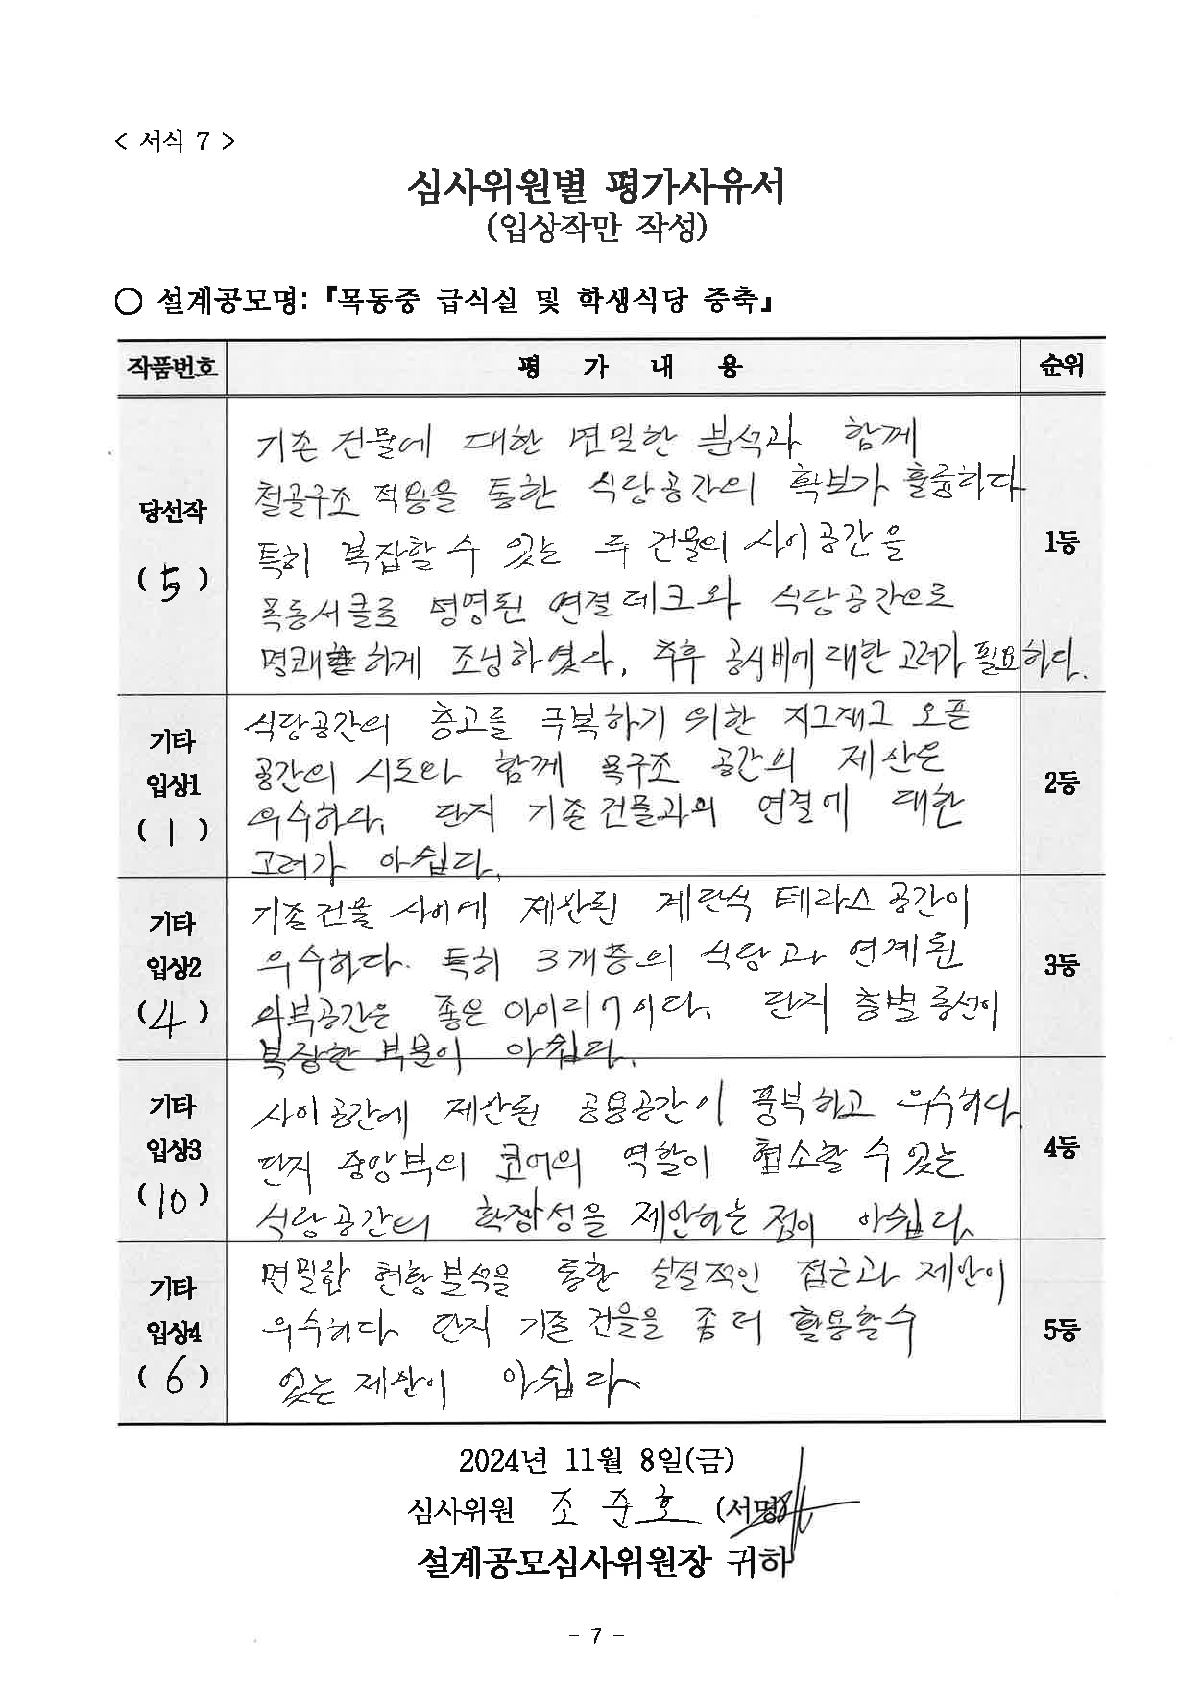 < 서식 7 >
심사위원별 평가사유서
(입상작만 작성)
○ 설계공모명:『목동중 급식실 및 학생식당 증축』
작품번호 평 가 내 용 순위
당선작
( 5 )
기존 건물에 대한 면밀한 분석과 함께
철골구조 적용을 통한 식당공간의 확보가 훌륭하다
특히 복잡할 수 있는 두 건물의 사이공간을
목동서클로 명명된 연결데크와 식당공간으로
명쾌하게 조닝하였다. 추후 공사비에 대한 고려가 필요하다.
1등
기타
입상1
( 1 )
식당공간의 층고를 극복하기 위한 지그재그 오픈
공간의 시도와 함께 목구조 공간의 제안은
우수하다. 단지 기존건물과의 연결에 대한
고려가 아쉽다.
2등
기타
입상2
( 4 )
기존건물 사이에 제안된 계단식 테라스 공간이
우수하다. 특히 3개층의 식당과 연계된
외부공간은 좋은 아이디어이다. 단지 층별 동선이
복잡한 부분이 아쉽다.
3등
기타
입상3
( 10 )
사이공간에 제안된 공용공간이 풍부하고 우수하다
단지 중앙부의 코어의 역할이 협소할 수 있는
식당공간의 확장성을 제안하는 점이 아쉽다.
4등
기타
입상4
( 6 )
면밀한 현황분석을 통한 실질적인 접근과 제안이
우수하다 단지 기존 건물을 좀 더 활용할 수
있는 제안이 아쉽다
5등
2024년 11월 8일(금)
심사위원 조준호 (서명)
설계공모심사위원장 귀하
- 7 -